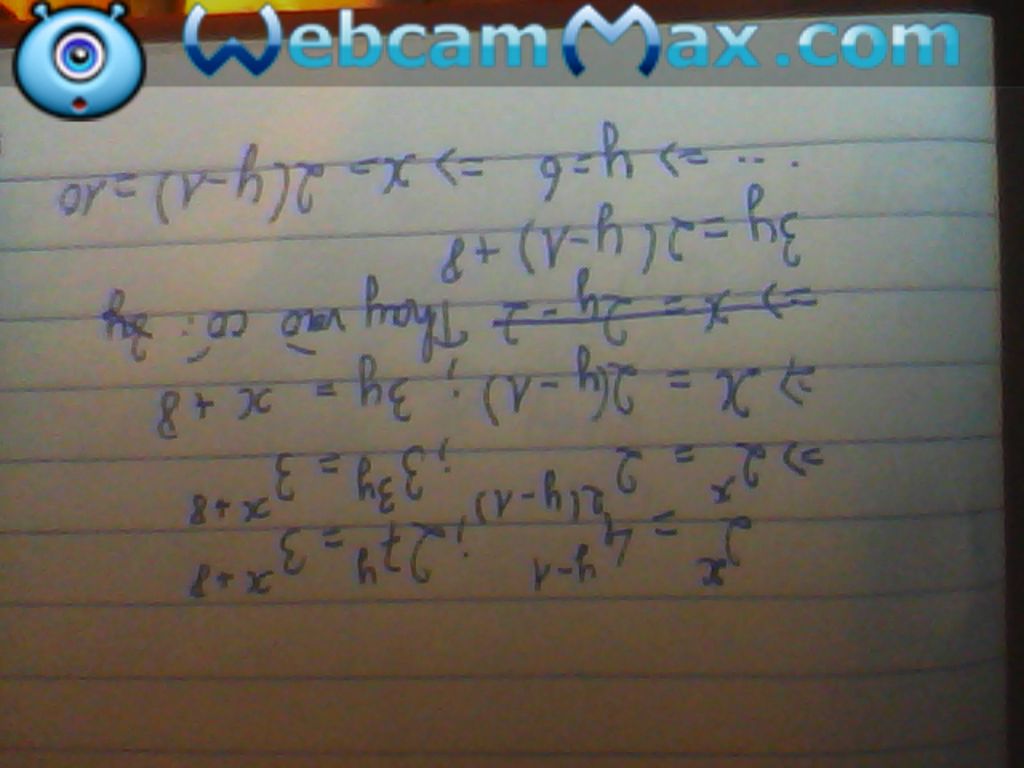 WebcamMax.com
2^x = 4^{y-1}; 27^y = 3^{x+8}
=> 2^x = 2^{2(y-1)}; 3^{3y} = 3^{x+8}
=> x = 2(y-1); 3y = x+8
=> x = 2y - 2 Thay vào có: 3y
3y = 2(y-1) + 8
... => y=6 => x = 2(y-1) = 10